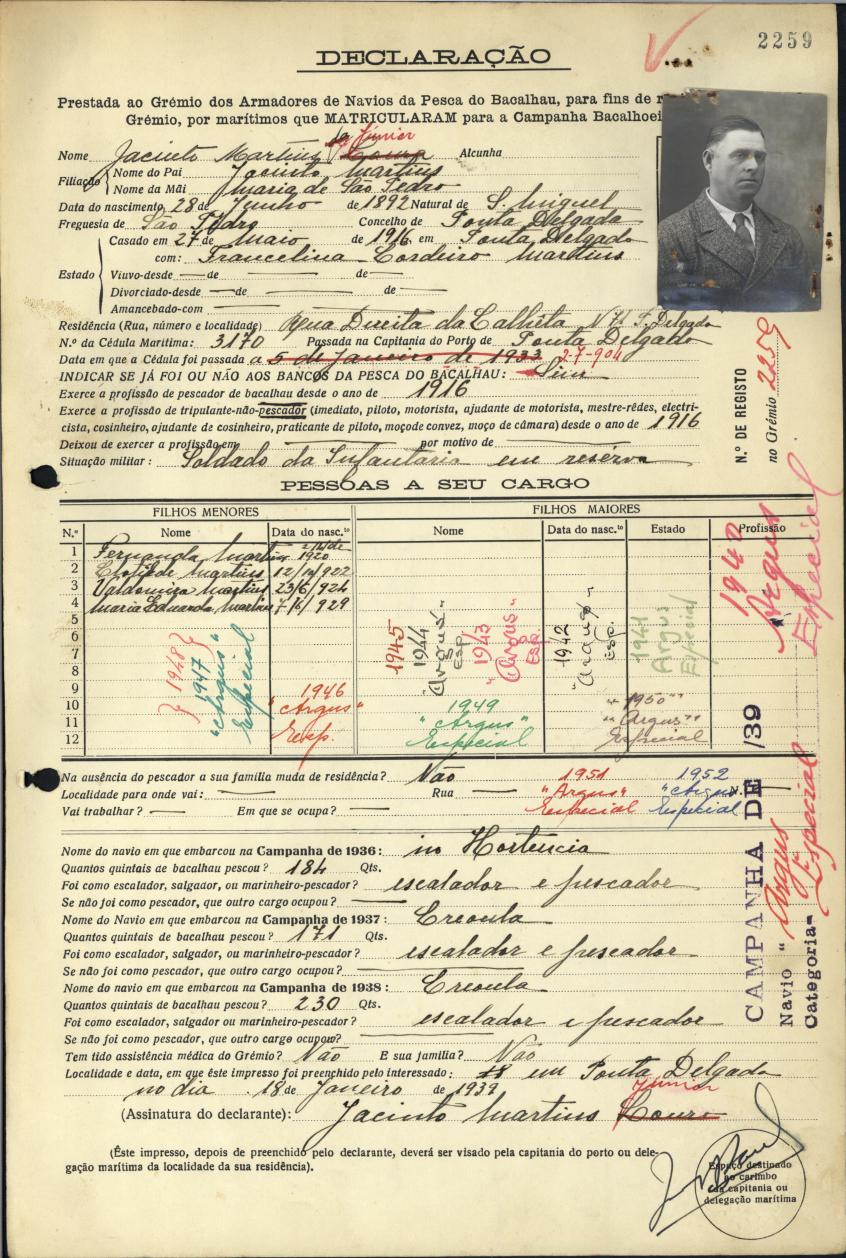 2259
DECLARAÇÃO
Prestada ao Grémio dos Armadores de Navios da Pesca do Bacalhau, para fins de r
Grémio, por marítimos que MATRICULARAM para a Campanha Bacalhoei
Júnior
Nome Jacinto Martins Alcunha
Filiação Nome do Pai Jacinto Martins
Nome da Mãi Maria de São Pedro
Data do nascimento 28 de Junho de 1892 Natural de S. Miguel
Freguesia de São Pedro Concelho de Ponta Delgada
Casado em 27 de Maio de 1916 em Ponta Delgada
com: Francelina Cordeiro Martins
Estado Viuvo-desde — de — de —
Divorciado-desde — de — de —
Amancebado-com —
Residência (Rua, número e localidade) Rua Direita da Calheta Nº 71 P. Delgada
N.º da Cédula Marítima: 3170 Passada na Capitania do Porto de Ponta Delgada
Data em que a Cédula foi passada a 5 de Janeiro de 1933 2-7-904
INDICAR SE JÁ FOI OU NÃO AOS BANCOS DA PESCA DO BACALHAU: Sim
Exerce a profissão de pescador de bacalhau desde o ano de 1916
Exerce a profissão de tripulante-não-pescador (imediato, piloto, motorista, ajudante de motorista, mestre-rêdes, electri-
cista, cosinheiro, ajudante de cosinheiro, praticante de piloto, moço de convez, moço de câmara) desde o ano de 1916
Deixou de exercer a profissão em — por motivo de —
Situação militar: Soldado da Infantaria em reserva
N.º DE REGISTO
no Grémio 2259
PESSOAS A SEU CARGO
FILHOS MENORES FILHOS MAIORES
N.º Nome Data do nasc.to Nome Data do nasc.to Estado Profissão
1 Fernanda Martins 1920
2 Clotilde Martins 12/ /922
3 Valdomiro Martins 23/6/924
4 Maria Eduarda Martins 7/6/929
5
6
7
8
9
10
11
12
1948
1947 "Argus" Especial
1946 "Argus" Esp.
1945
1944 "Argus" Esp.
1943 "Argus" Esp.
1949 "Argus" Especial
1942 "Argus" Esp.
1941 Argus Especial
"1950" "Argus" Especial
1942 Argus Especial
Na ausência do pescador a sua família muda de residência? Não
Localidade para onde vai: — Rua — N.º —
Vai trabalhar? — Em que se ocupa? —
1951 "Argus" Especial
1952 "Argus" Especial
Nome do navio em que embarcou na Campanha de 1936: no Hortencia
Quantos quintais de bacalhau pescou? 184 Qts.
Foi como escalador, salgador, ou marinheiro-pescador? escalador e pescador
Se não foi como pescador, que outro cargo ocupou? —
Nome do Navio em que embarcou na Campanha de 1937: Creoula
Quantos quintais de bacalhau pescou? 171 Qts.
Foi como escalador, salgador, ou marinheiro-pescador? escalador e pescador
Se não foi como pescador, que outro cargo ocupou? —
Nome do navio em que embarcou na Campanha de 1938: Creoula
Quantos quintais de bacalhau pescou? 230 Qts.
Foi como escalador, salgador ou marinheiro-pescador? escalador e pescador
Se não foi como pescador, que outro cargo ocupou? —
Tem tido assistência médica do Grémio? Não E sua família? Não
Localidade e data, em que êste impresso foi preenchido pelo interessado: em Ponta Delgada
no dia 18 de Janeiro de 1939
Júnior
(Assinatura do declarante): Jacinto Martins
CAMPANHA DE /39
Navio "Argus
Categoria- Especial
(Êste impresso, depois de preenchido pelo declarante, deverá ser visado pela capitania do porto ou dele-
gação marítima da localidade da sua residência).
Espaço destinado
ao carimbo
da capitania ou
delegação marítima